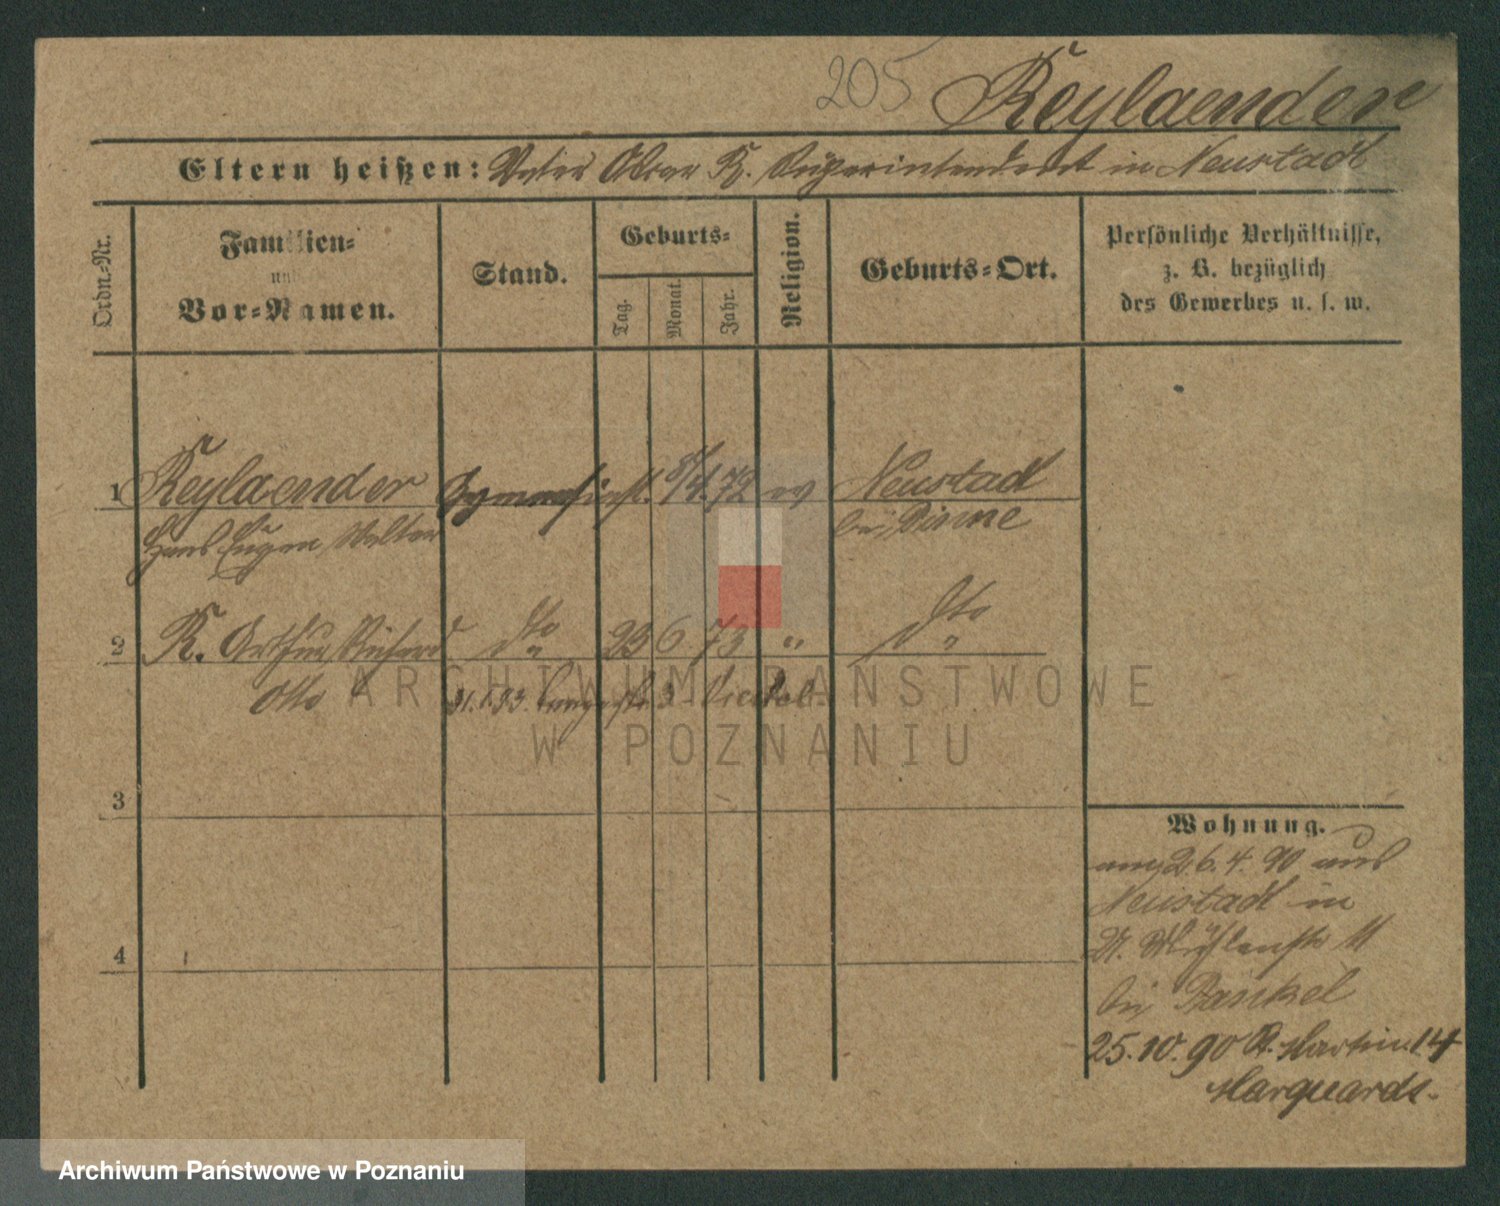 205 Reylaender
Eltern heißen: Vater Oscar R. Superintendent in Neustadt
Ordn.-Nr.
Familien-
und
Vor-Namen.
Stand.
Geburts-
Tag.
Monat.
Jahr.
Religion.
Geburts-Ort.
Persönliche Verhältnisse,
z. B. bezüglich
des Gewerbes u. s. w.
1 Reylaender Gymnasiast. 8/4.72 ev Neustadt
Hans Eugen Walter bei Pinne
2 R. Arthur Richard dto 23 6 73 " dto
Otto 31.1.93. 3
3
4
Wohnung.
26.4.90 aus
Neustadt in
Mühlenstr 11
bei
25.10.90 St. Martin 14
Marquardt.
ARCHIWUM PAŃSTWOWE
W POZNANIU
Archiwum Państwowe w Poznaniu